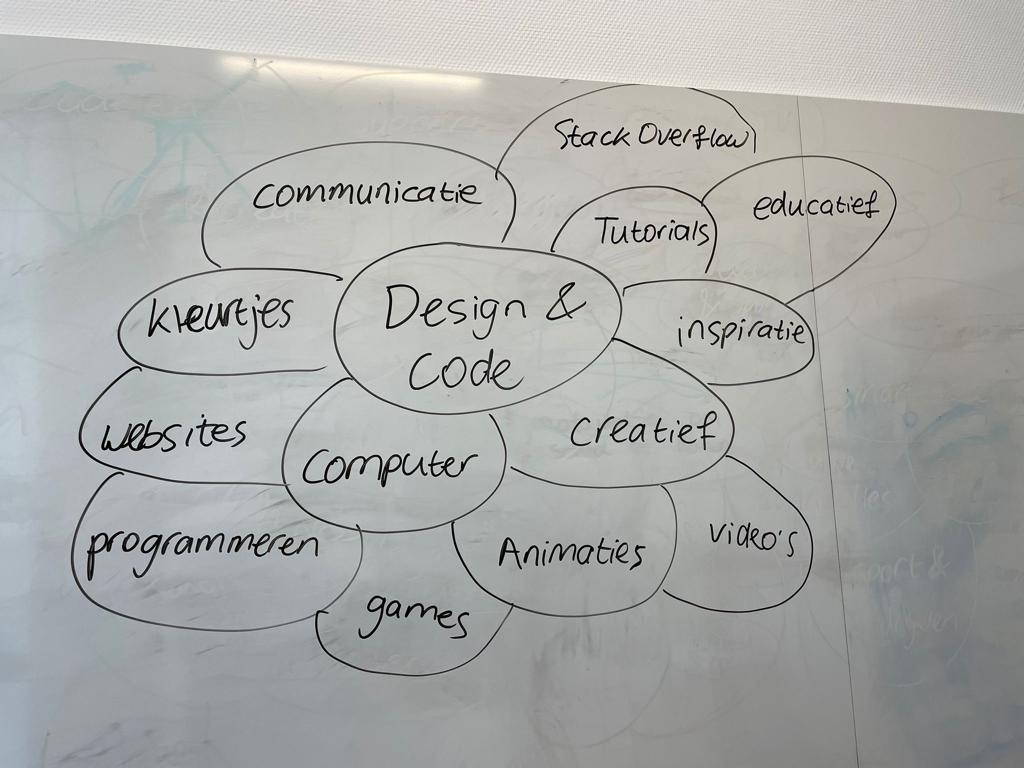 Stack Overflow
communicatie
Tutorials
educatief
kleurtjes
Design &
Code
inspiratie
websites
Computer
creatief
programmeren
Animaties
video's
games